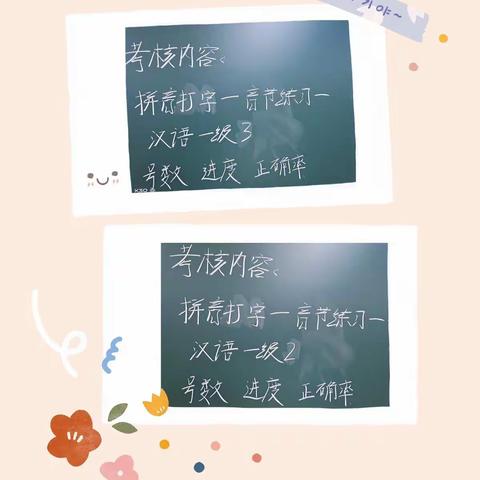 考核内容:
拼音打字一音节练习一
汉语一级3
号数 进度 正确率
K30
考核内容:
拼音打字一音节练习一
汉语一级2
号数 进度 正确率